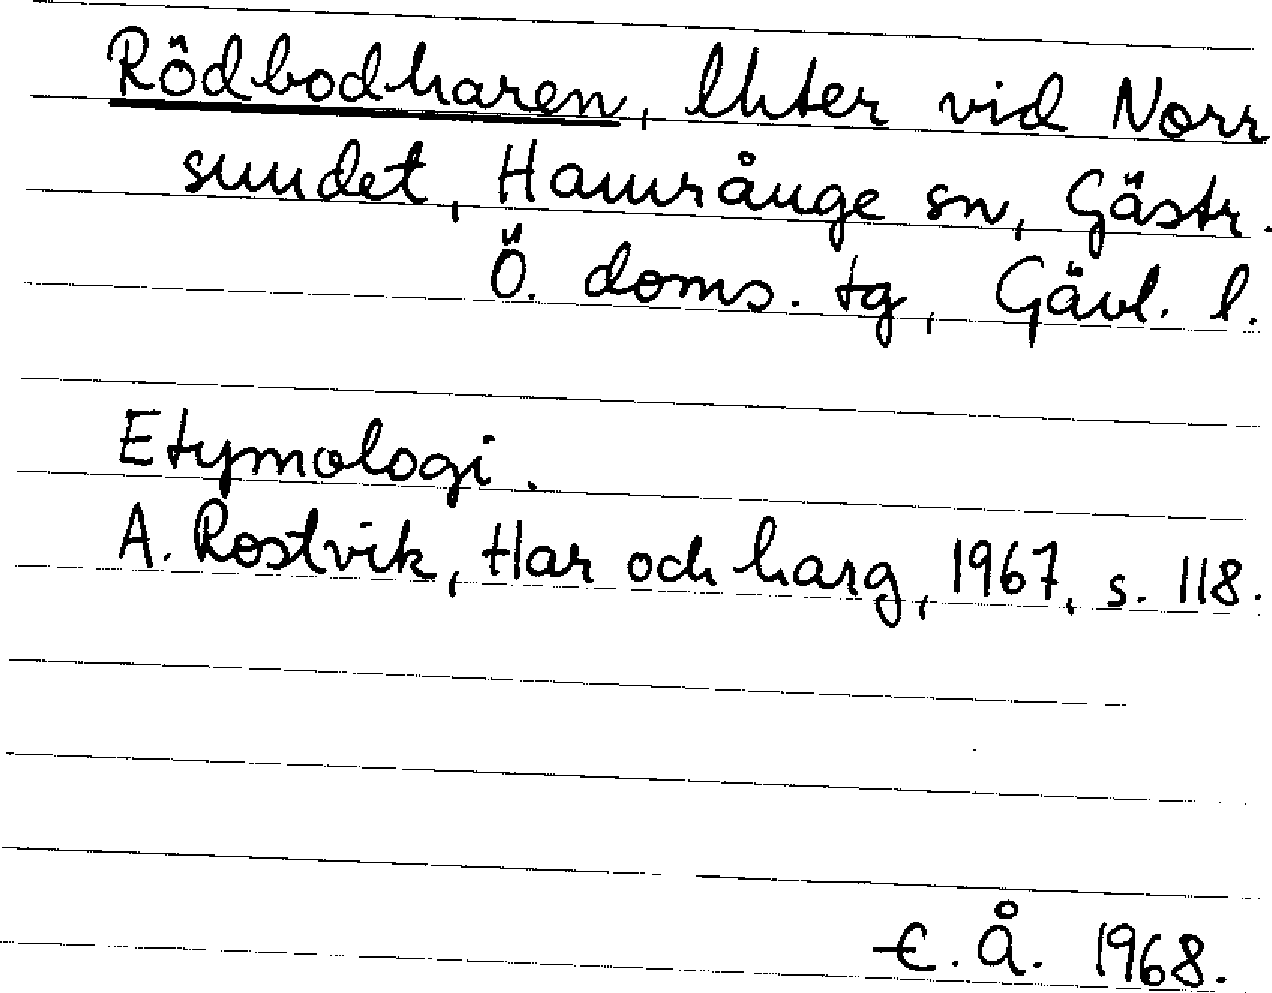 Rödbodharen, lhter vid Norr
sundet, Hamrånge sn, Gästr.
Ö. doms. tg, Gävl. l.
Etymologi.
A. Rostvik, Har och harg, 1967, s. 118.
E. Å. 1968.